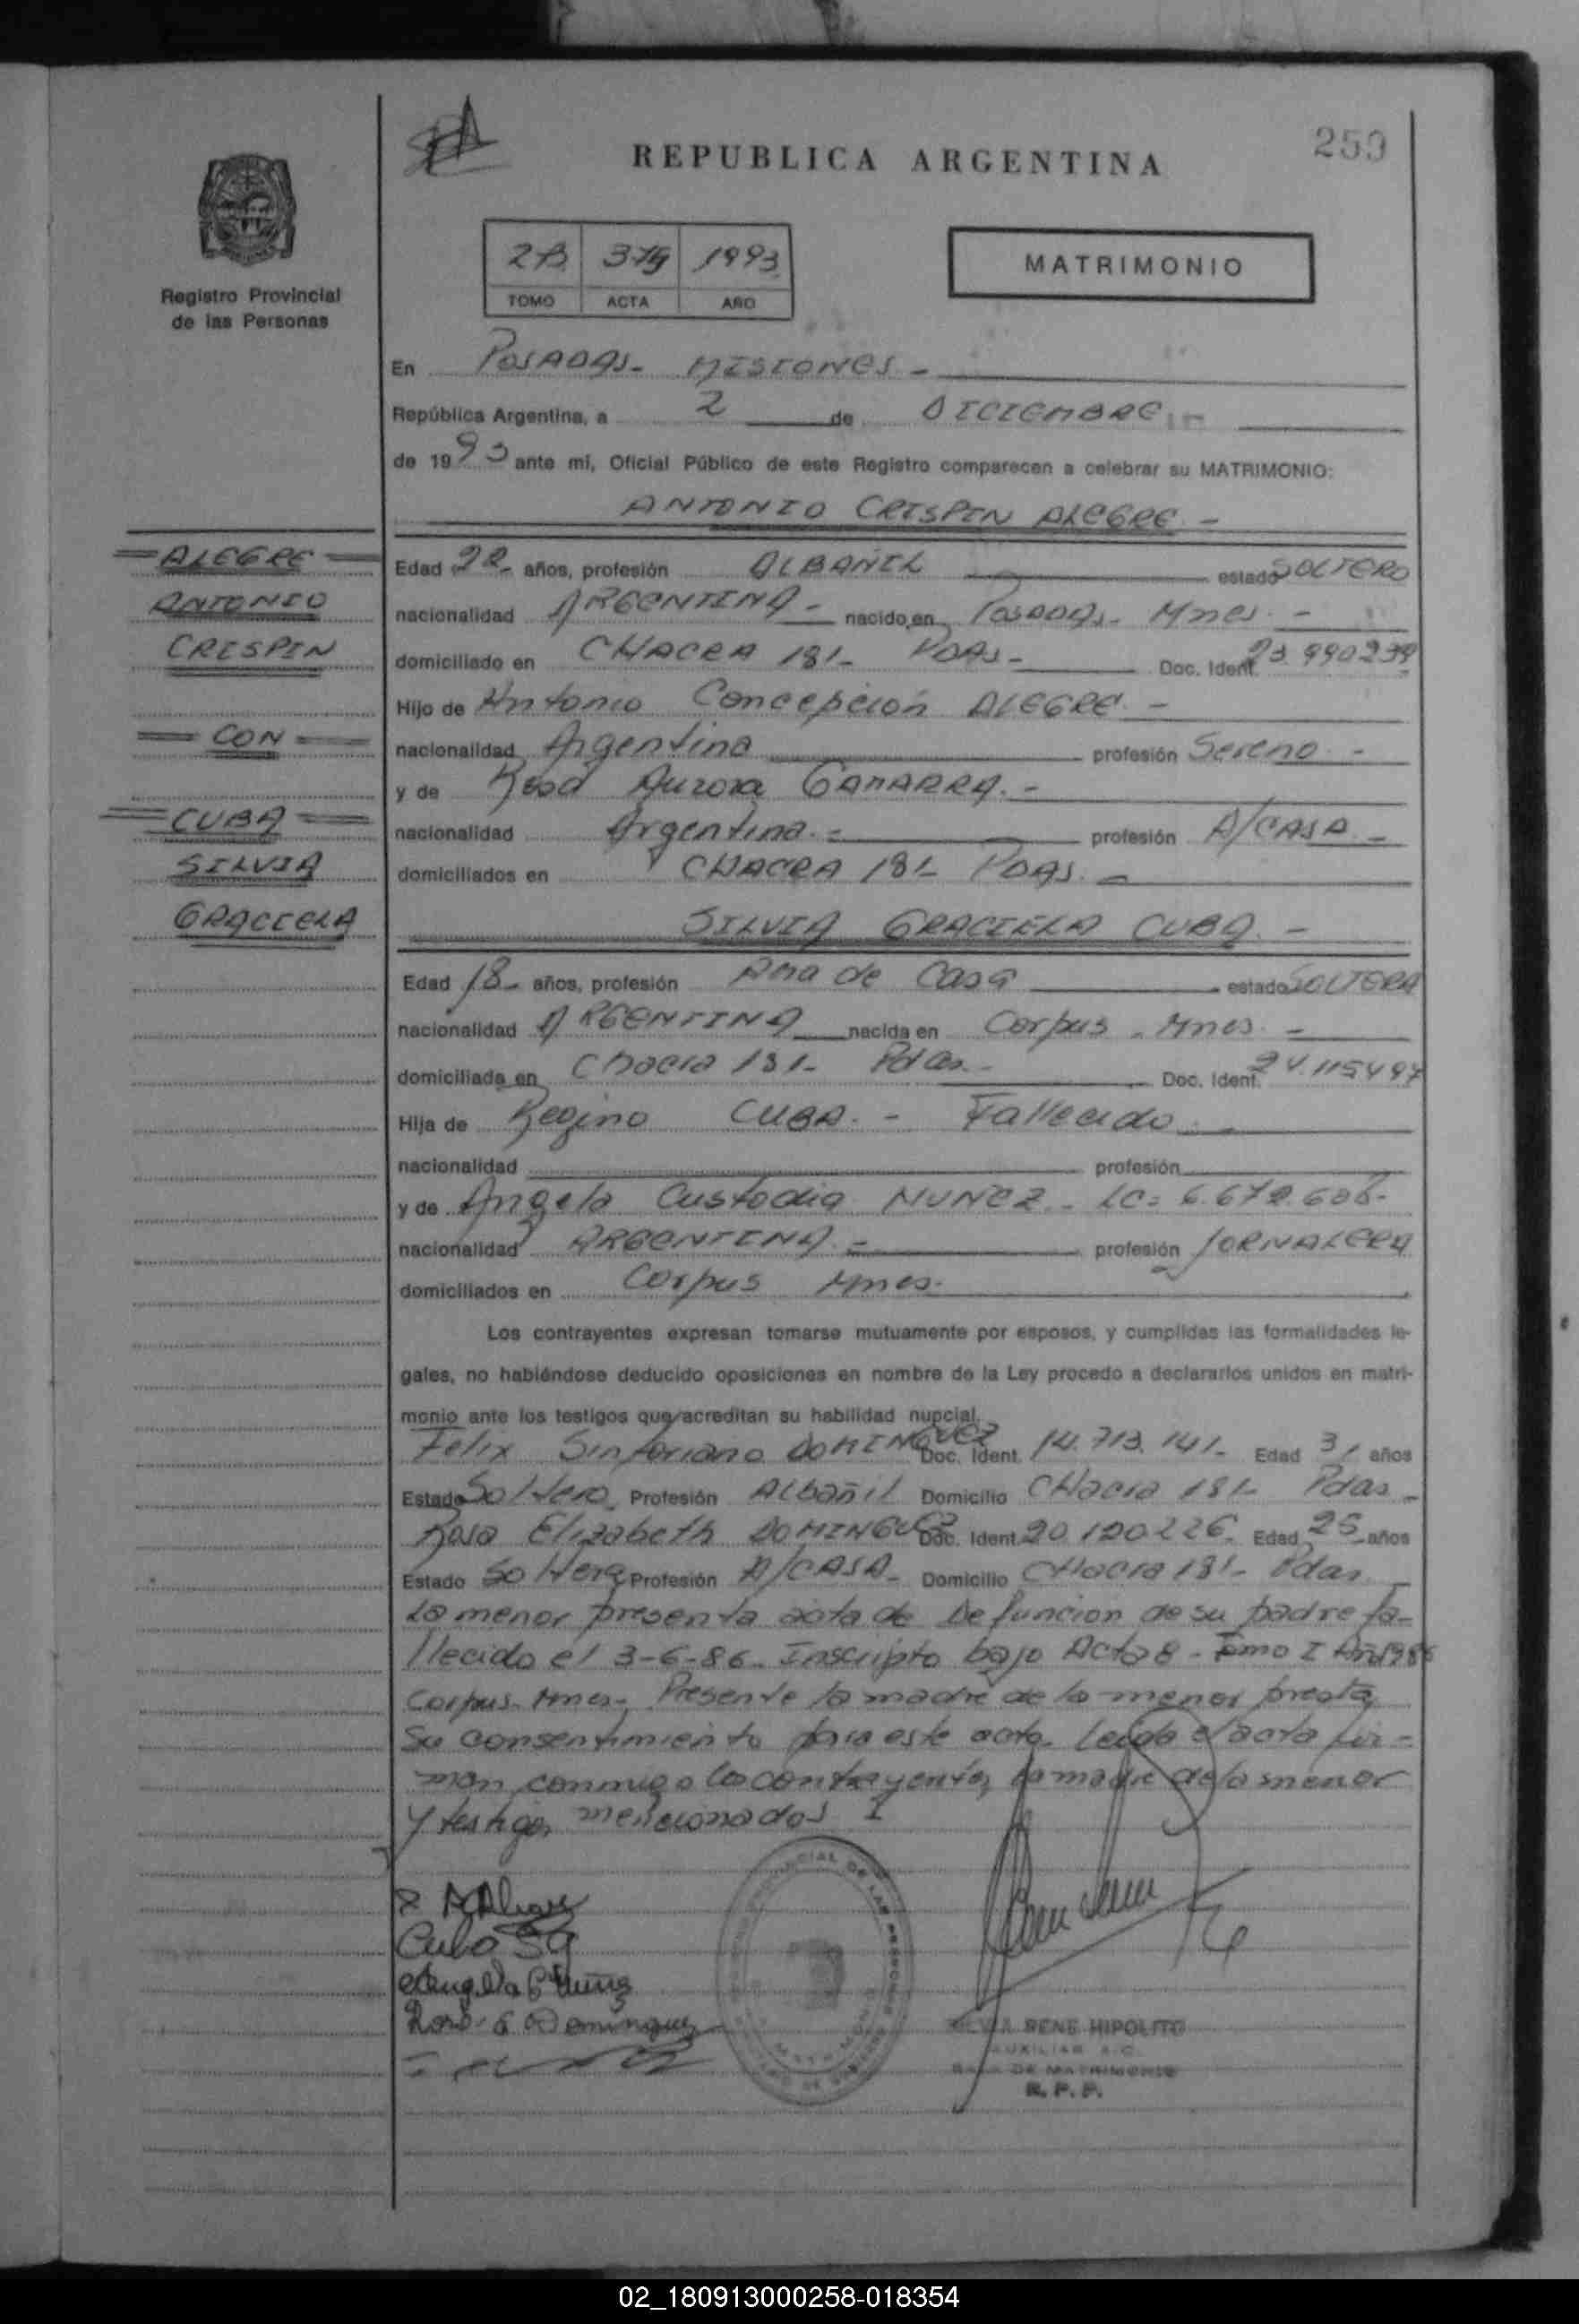 REPUBLICA ARGENTINA
259
Registro Provincial
de las Personas
2B 379 1993
TOMO ACTA AÑO
MATRIMONIO
En POSADAS - MISIONES -
República Argentina, a 2 de DICIEMBRE -
de 1993 ante mí, Oficial Público de este Registro comparecen a celebrar su MATRIMONIO:
ANTONIO CRISPIN ALEGRE -
ALEGRE
ANTONIO
CRISPIN
CON
CUBA
SILVIA
GRACIELA
Edad 22 años, profesión ALBAÑIL estado SOLTERO
nacionalidad ARGENTINA - nacido en Posadas - Mnes -
domiciliado en CHACRA 181 - PDAS - Doc. Ident. 23.990239
Hijo de Antonio Concepción ALEGRE -
nacionalidad Argentina profesión Sereno -
y de Rosa Aurora GAMARRA. -
nacionalidad Argentina. - profesión A/CASA -
domiciliados en CHACRA 181 PDAS. -
SILVIA GRACIELA CUBA. -
Edad 18 años, profesión Ama de Casa estado SOLTERA
nacionalidad ARGENTINA nacida en Corpus - Mnes -
domiciliada en Chacra 181 - Pdas - Doc. Ident. 24.115497
Hija de Regino CUBA. - Fallecido
nacionalidad profesión
y de Angela Custodia NUNEZ - LC:
nacionalidad ARGENTINA. - profesión JORNALERA
domiciliados en Corpus Mnes.
Los contrayentes expresan tomarse mutuamente por esposos, y cumplidas las formalidades le-
gales, no habiéndose deducido oposiciones en nombre de la Ley procedo a declararlos unidos en matri-
monio ante los testigos que acreditan su habilidad nupcial.
Felix Sinforiano DOMINGUEZ Doc. Ident. 14.713.141 - Edad 31 años
Estado Soltero Profesión Albañil Domicilio Chacra 181 - Pdas -
Rosa Elizabeth DOMINGUEZ Doc. Ident. 20.120226 - Edad 25 años
Estado Soltera Profesión A/CASA - Domicilio Chacra 181 - Pdas
La menor presenta acta de Defuncion de su padre fa-
llecido el 3-6-86 - Inscripto bajo Acta 8 - Tomo I Año 1986
Corpus - Mnes - Presente la madre de la menor presta
su consentimiento para este acto. Leida el acta fir-
man conmigo los contrayentes, la madre de la menor
y testigos mencionados
A Alegre
Cuba SG
Angela C Nuñez
Rosa E Dominguez
RENE HIPOLITO
AUXILIAR
DE MATRIMONIO
R. P. P.
02_180913000258-018354